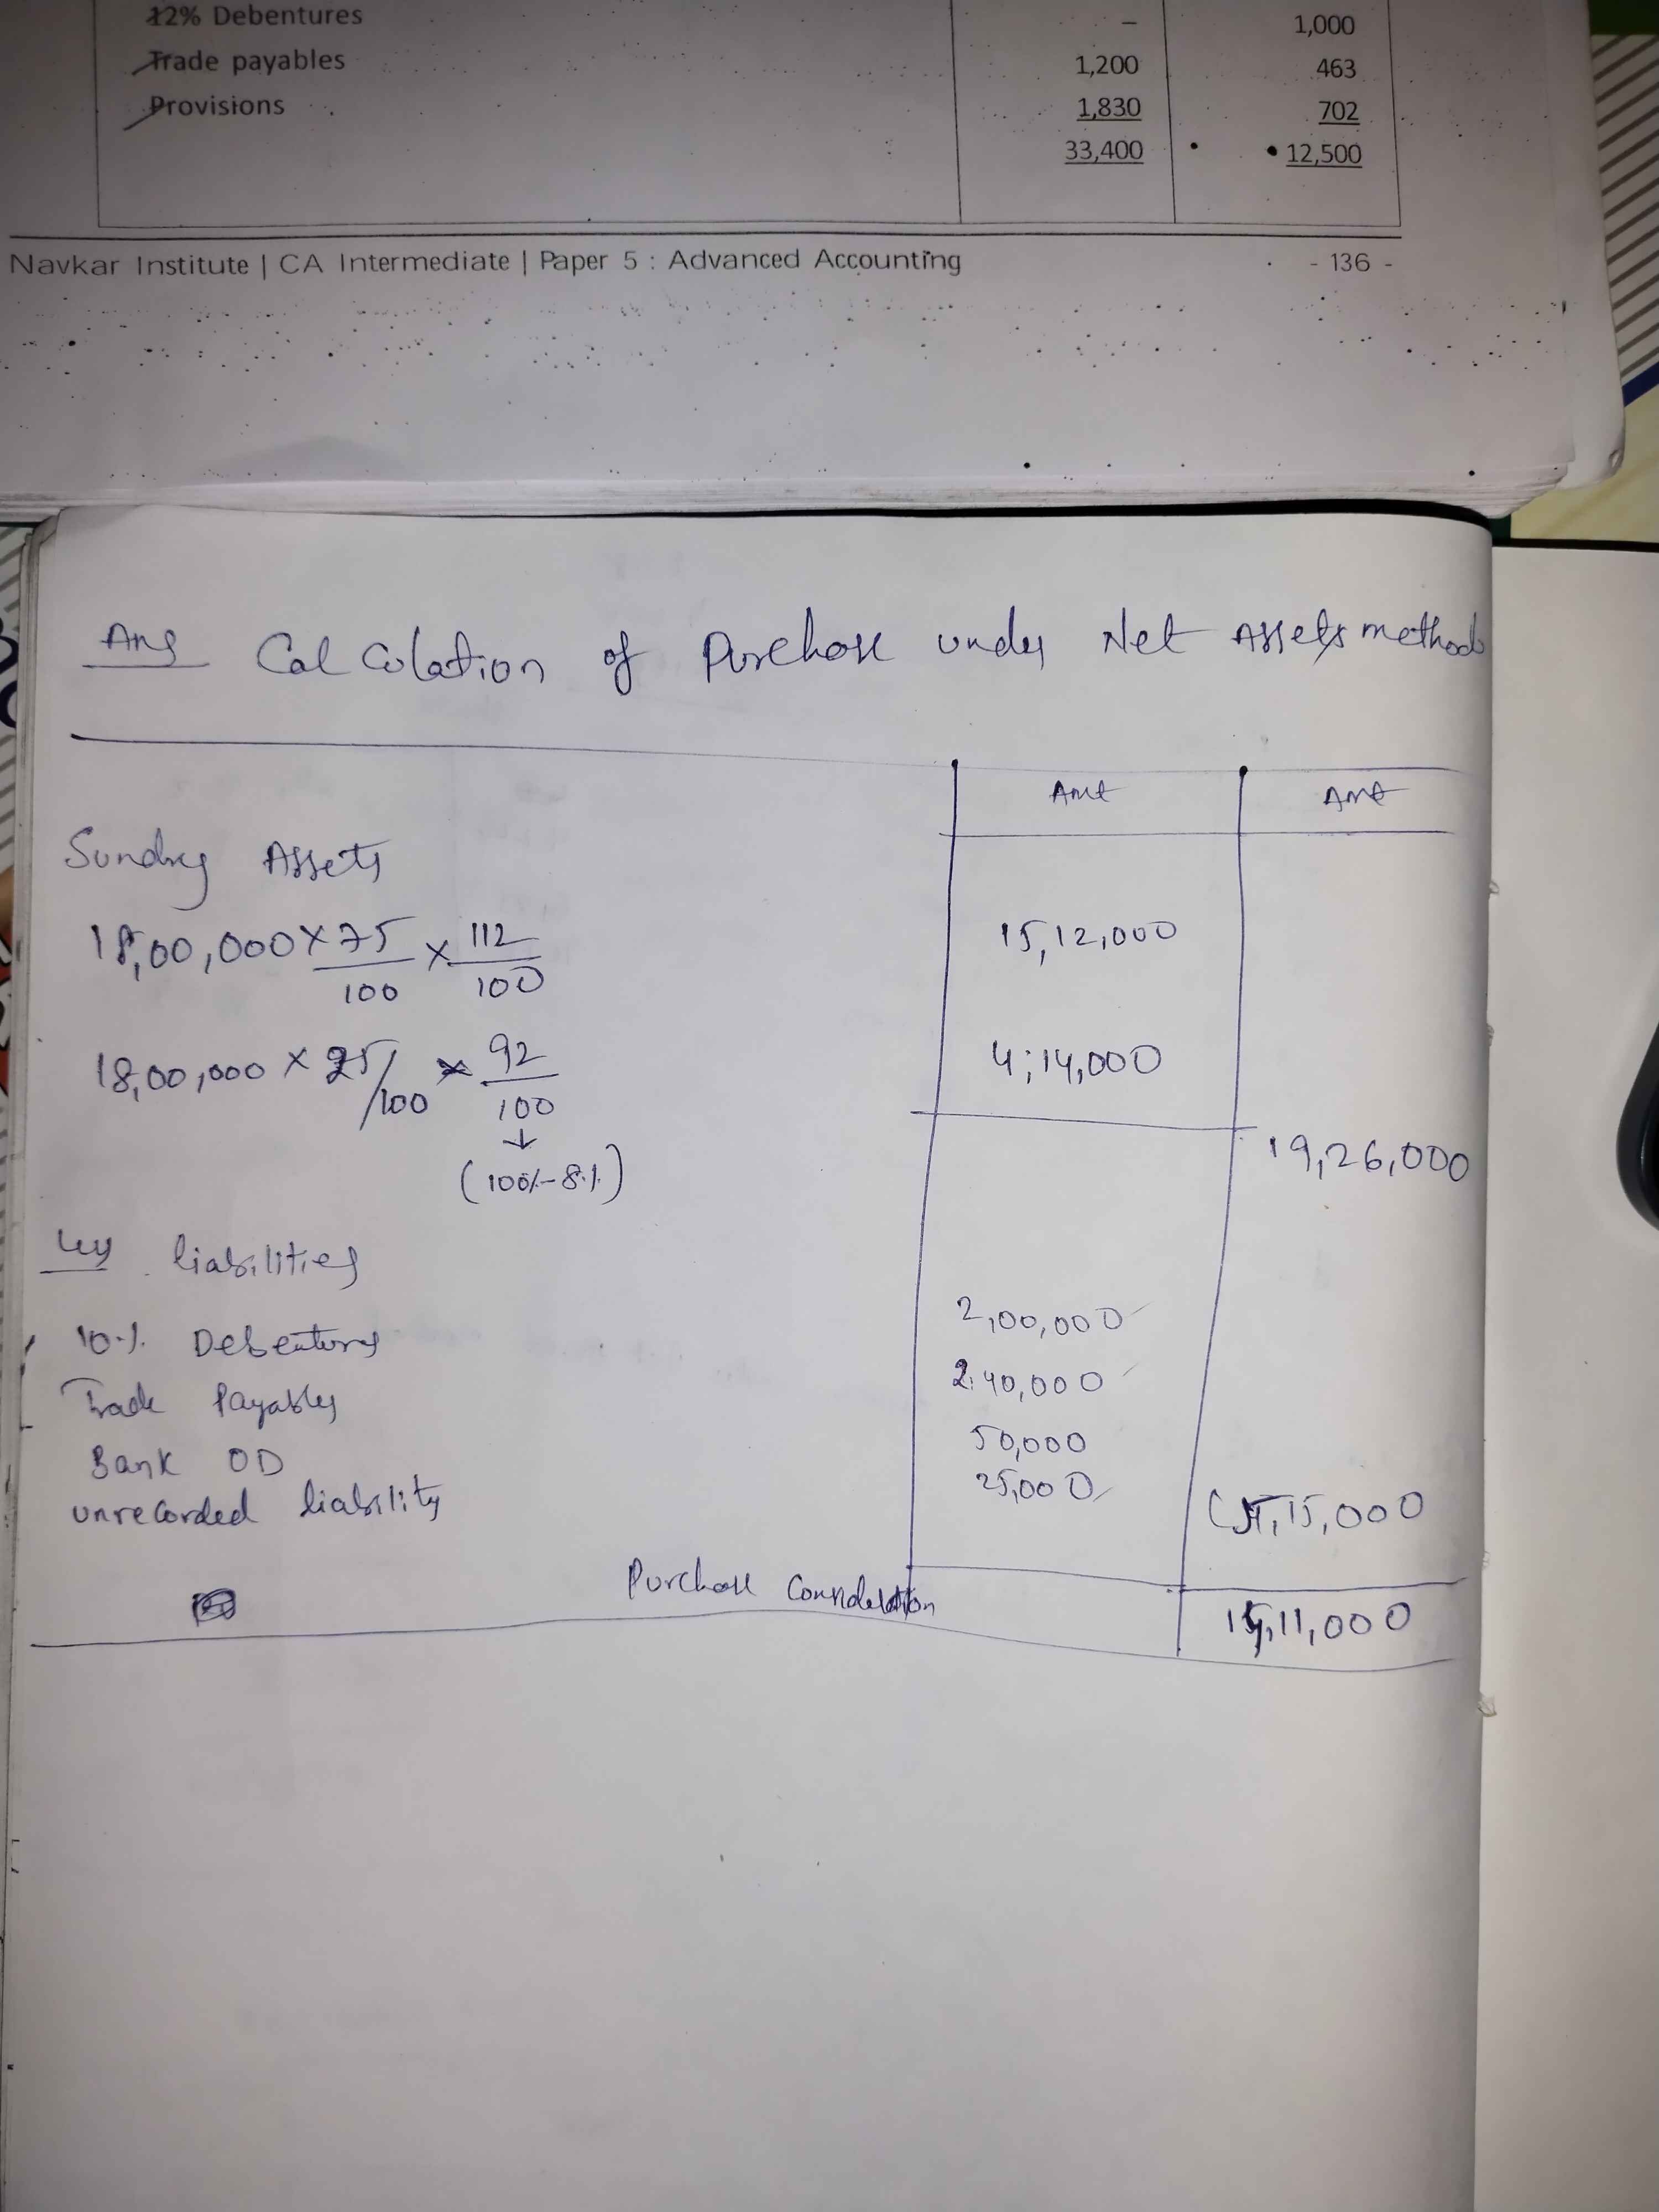 12% Debentures – 1,000
Trade payables 1,200 463
Provisions 1,830 702
33,400 12,500
Navkar Institute | CA Intermediate | Paper 5 : Advanced Accounting - 136 -
Ans Calculation of Purchase under Net Assets method
Amt Amt
Sundry Assets
18,00,000 × 75/100 × 112/100 15,12,000
18,00,000 × 25/100 × 92/100 4,14,000
↓
(100%-8%) 19,26,000
liabilities
10% Debentures 2,00,000
Trade Payables 2,40,000
Bank OD 50,000
unrecorded liability 25,000 (5,15,000
Purchase Consideration 14,11,000